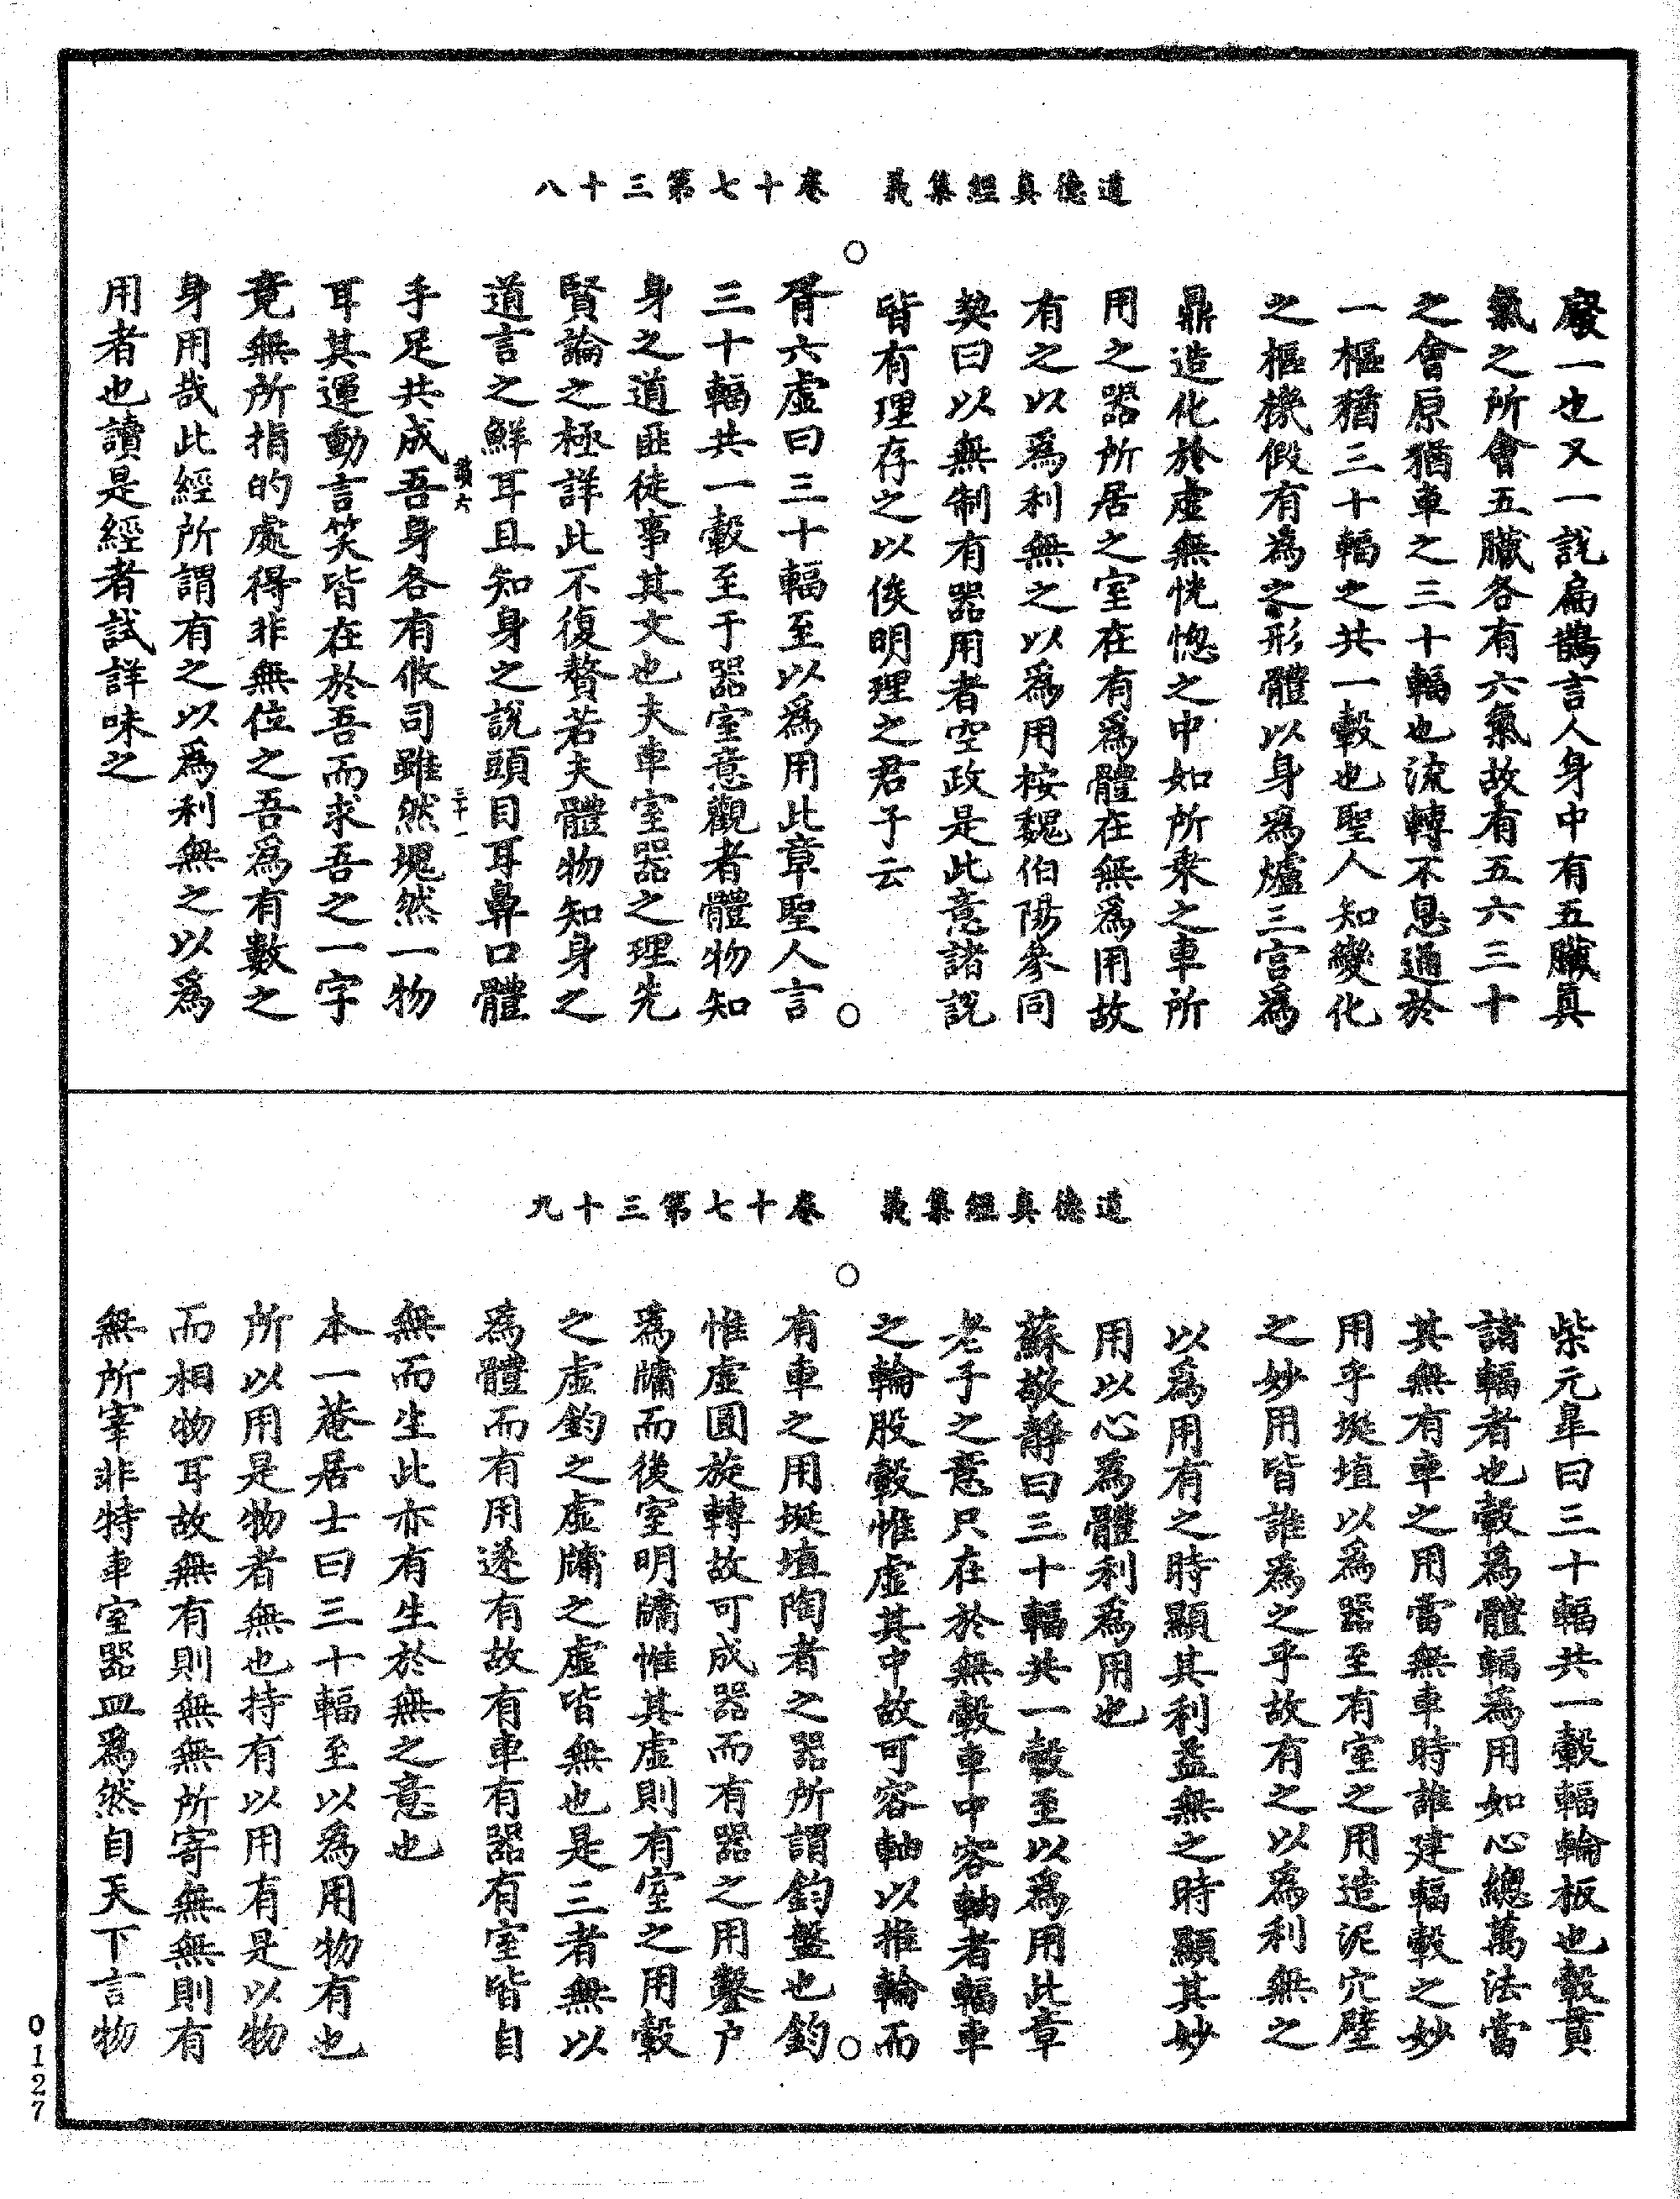 道德真經集義　卷十七第三十八
廢一也又一說扁鵲言人身中有五臟真
氣之所會五臟各有六氣故有五六三十
之會原猶車之三十輻也流轉不息通於
一樞猶三十輻之共一轂也聖人知變化
之樞機假有為之形體以身為爐三宮為
鼎造化於虛無恍惚之中如所乘之車所
用之器所居之室在有爲體在無爲用故
有之以爲利無之以爲用按魏伯陽參同
契曰以無制有器用者空政是此意諸說
皆有理存之以俟明理之君子云
胥六虛曰三十輻至以爲用此章聖人言
三十輻共一轂至于器室意觀者體物知
身之道匪徒事其文也夫車室器之理先
賢論之極詳此不復贅若夫體物知身之
道言之鮮耳且知身之說頭目耳鼻口體
手足共成吾身各有攸司雖然塊然一物
耳其運動言笑皆在於吾而求吾之一字
竟無所指的處得非無位之吾爲有數之
身用哉此經所謂有之以爲利無之以爲
用者也讀是經者試詳味之
六
三十一
道德真經集義　卷十七第三十九
柴元皐曰三十輻共一轂輻輪板也轂貫
諸輻者也轂爲體輻為用如心總萬法當
其無有車之用當無車時誰建輻轂之妙
用乎埏埴以爲器至有室之用造泥穴壁
之妙用皆誰為之乎故有之以爲利無之
以爲用有之時顯其利益無之時顯其妙
用以心為體利為用也
蘇敬靜曰三十輻共一轂至以爲用此章
老子之意只在於無轂車中容軸者輻車
之輪股轂惟虛其中故可容軸以推輪而
有車之用埏埴陶者之器所謂鈞盤也鈞
惟虛圓旋轉故可成器而有器之用鑿户
爲牖而後室明牖惟其虛則有室之用轂
之虛鈞之虛牖之虛皆無也是三者無以
爲體而有用遂有故有車有器有室皆自
無而生此亦有生於無之意也
本一菴居士曰三十輻至以爲用物有也
所以用是物者無也持有以用有是以物
而相物耳故無有則無無所寄無無則有
無所宰非特車室器皿爲然自天下言物
0127